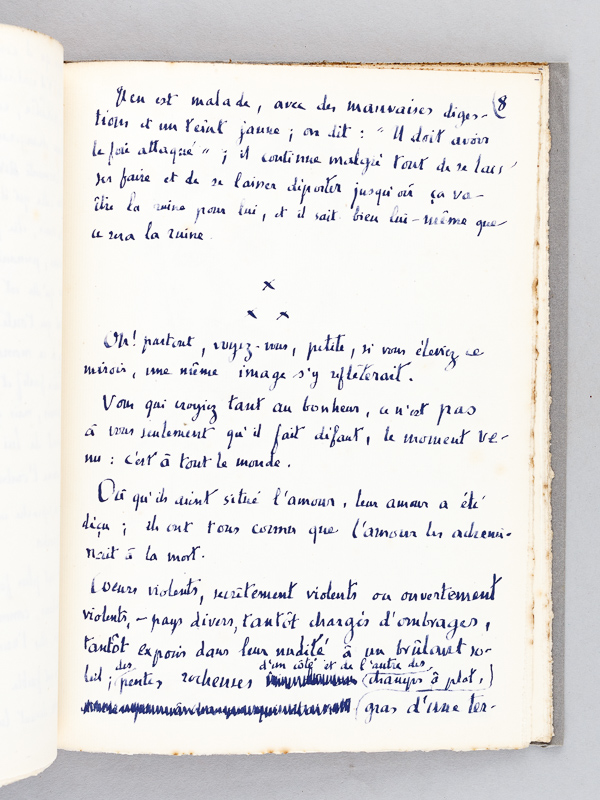 (8
Il en est malade, avec des mauvaises diges-
tions et un teint jaune ; on dit : " Il doit avoir
le foie attaqué " ; il continue malgré tout de se lais-
ser faire et de se laisser déporter jusqu'où ça va-
être la ruine pour lui, et il sait bien lui-même que
ce sera la ruine.
x
x x
Oh! partout, voyez-vous, petite, si vous éleviez ce
miroir, une même image s'y refléterait.
Vous qui croyiez tant au bonheur, ce n'est pas
à vous seulement qu'il fait défaut, le moment ve-
nu : c'est à tout le monde.
Où qu'ils aient situé l'amour, leur amour a été
déçu ; ils ont tous connu que l'amour les achemi-
nait à la mort.
Coeurs violents, secrètement violents ou ouvertement
violents, - pays divers, tantôt chargés d'ombrages,
tantôt exposés dans leur nudité à un brûlant so-
leil ; des pentes rocheuses d'un côté et de l'autre des (champs à plat,)
(gras d'une ter-